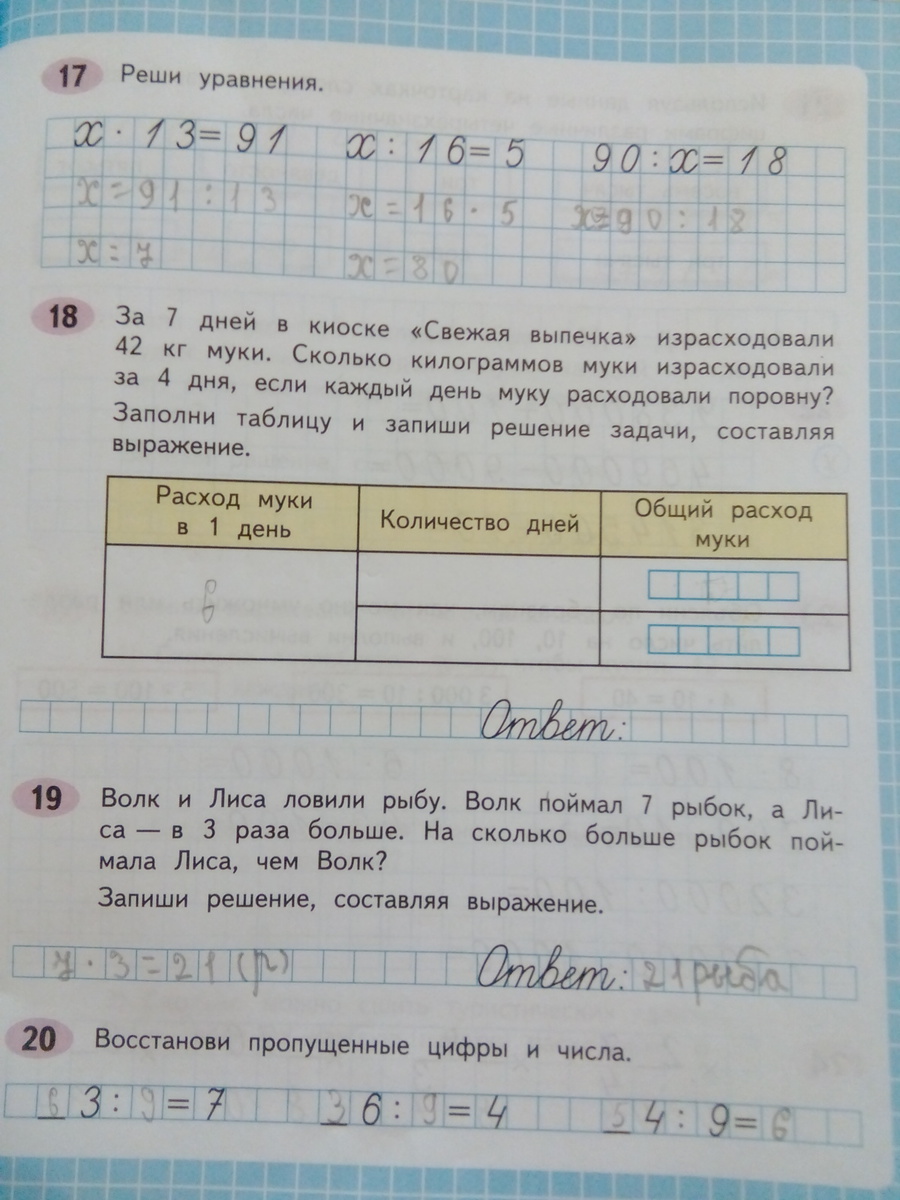 17 Реши уравнения.
x · 13 = 91 x : 16 = 5 90 : x = 18
x = 91 : 13 x = 16 · 5 x = 90 : 18
x = 7 x = 80
18 За 7 дней в киоске «Свежая выпечка» израсходовали
42 кг муки. Сколько килограммов муки израсходовали
за 4 дня, если каждый день муку расходовали поровну?
Заполни таблицу и запиши решение задачи, составляя
выражение.
Расход муки
в 1 день
Количество дней
Общий расход
муки
Ответ:
19 Волк и Лиса ловили рыбу. Волк поймал 7 рыбок, а Ли-
са — в 3 раза больше. На сколько больше рыбок пой-
мала Лиса, чем Волк?
Запиши решение, составляя выражение.
7 · 3 = 21 (р) Ответ: 21 рыба
20 Восстанови пропущенные цифры и числа.
63 : 9 = 7 36 : 9 = 4 54 : 9 = 6